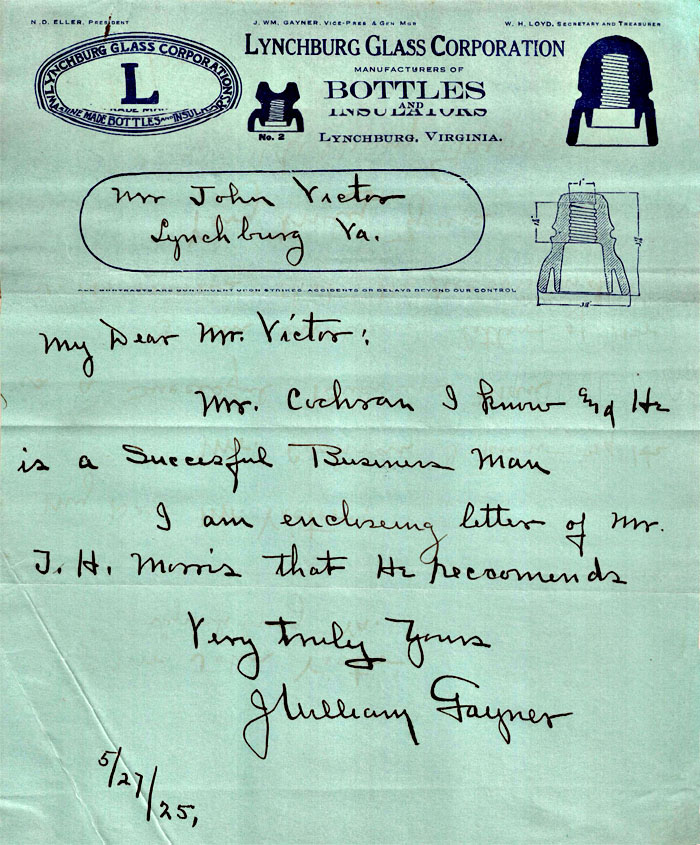 N. D. ELLER, PRESIDENT
J. WM. GAYNER, VICE-PRES & GEN MGR
W. H. LOYD, SECRETARY AND TREASURER
LYNCHBURG GLASS CORPORATION
L
TRADE MARK
MACHINE MADE BOTTLES AND INSULATORS
LYNCHBURG GLASS CORPORATION
MANUFACTURERS OF
BOTTLES
AND
INSULATORS
LYNCHBURG, VIRGINIA.
No. 2
Mr John Victor
Lynchburg Va.
ALL CONTRACTS ARE CONTINGENT UPON STRIKES, ACCIDENTS OR DELAYS BEYOND OUR CONTROL
1"
My Dear Mr. Victor:
Mr. Cochran I know and He
is a Succesful Business Man
I am encloseing letter of Mr.
T. H. Morris that He reccomends
Very truly Yours
J William Gayner
5/27/25,